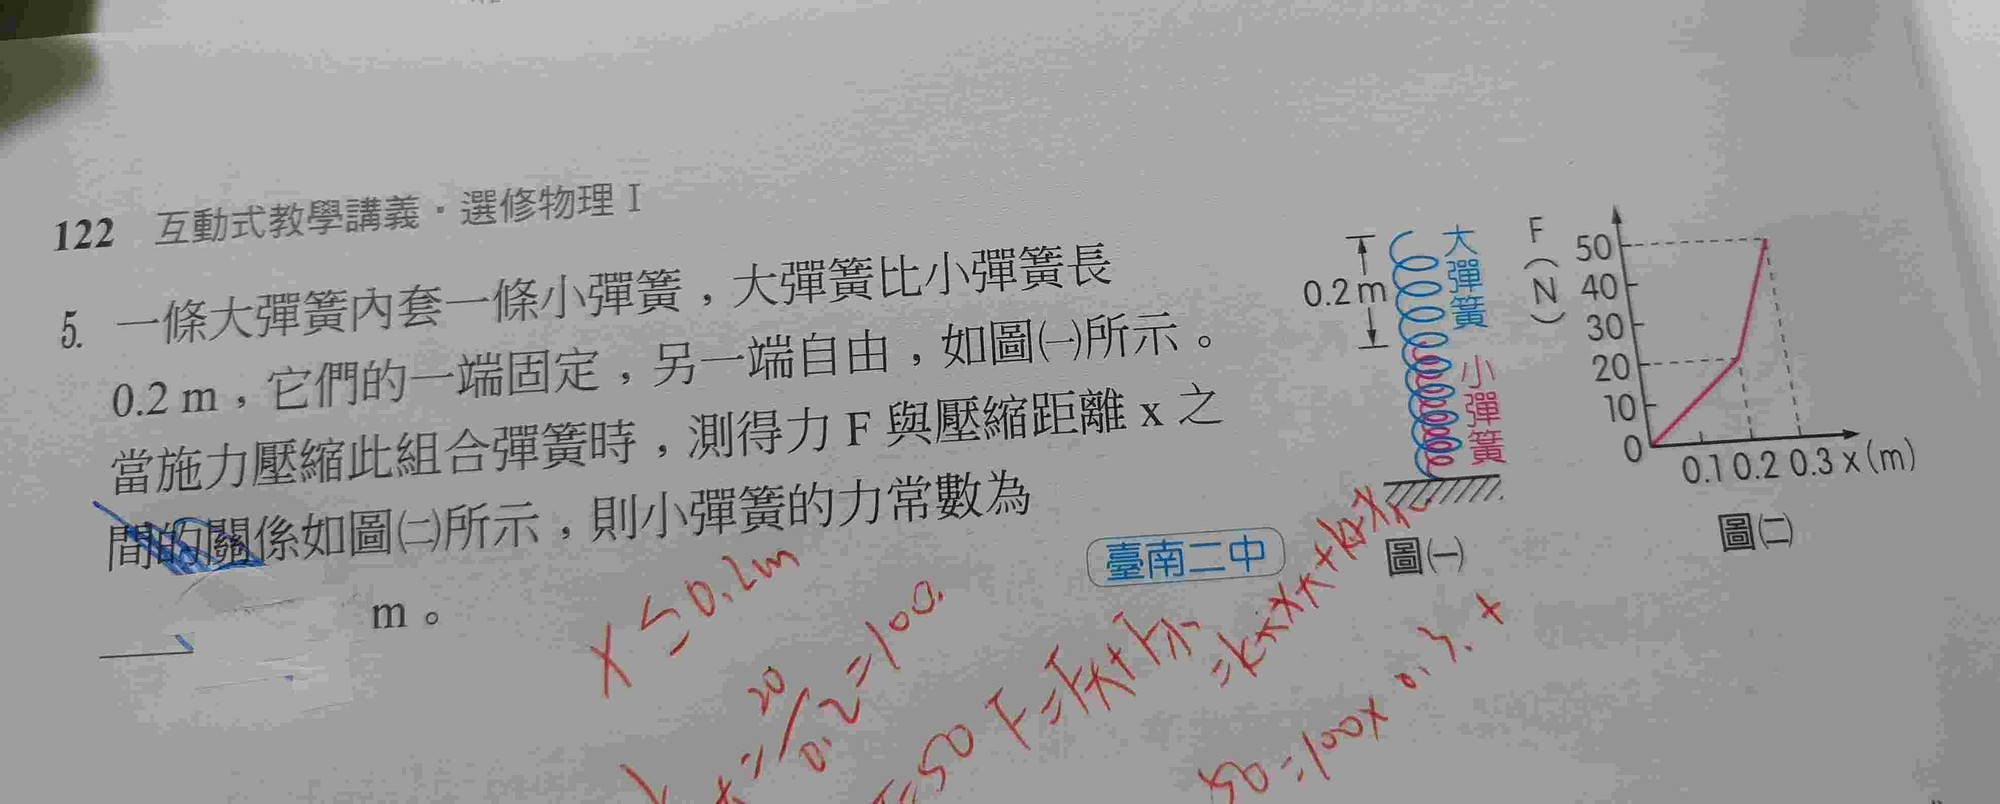 122 互動式教學講義・選修物理 I
5. 一條大彈簧內套一條小彈簧，大彈簧比小彈簧長
0.2 m，它們的一端固定，另一端自由，如圖㈠所示。
當施力壓縮此組合彈簧時，測得力 F 與壓縮距離 x 之
間的關係如圖㈡所示，則小彈簧的力常數為
m。
臺南二中
0.2 m
大彈簧
小彈簧
圖㈠
F(N)
50
40
30
20
10
0
0.1 0.2 0.3 x(m)
圖㈡
20
0.2 = 100
=50 F=F大+F小
50=100x 0.3 +